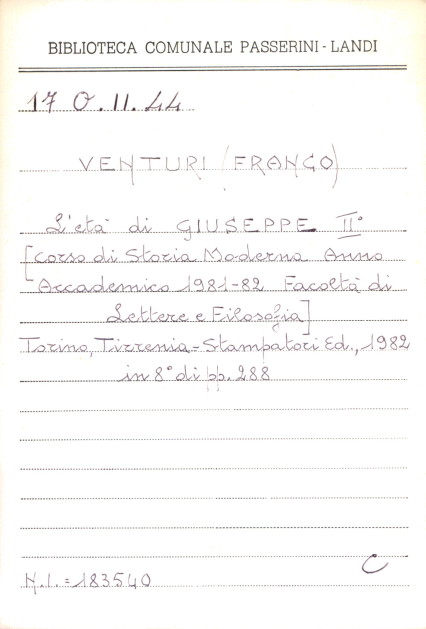 BIBLIOTECA COMUNALE PASSERINI - LANDI
17 O. II. 44
VENTURI (FRANCO)
L'età di GIUSEPPE II°
[Corso di Storia Moderna Anno
Accademico 1981-82 Facoltà di
Lettere e Filosofia]
Torino, Tirrenia-Stampatori Ed., 1982
in 8° di pp. 288
C
N.I. = 183540